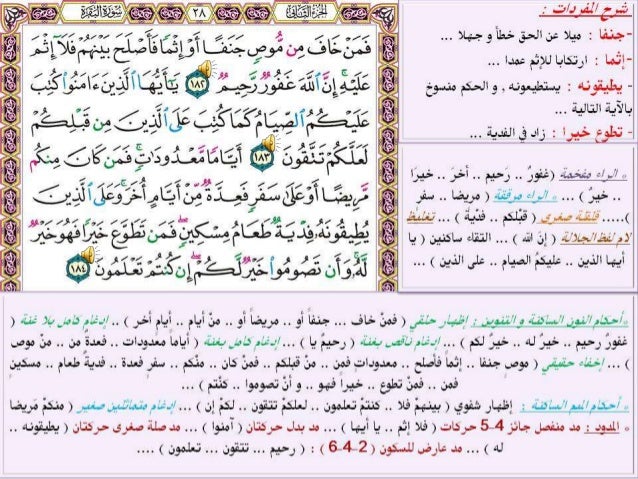 الجزء الثاني ٢٨ سورة البقرة
فَمَنْ خَافَ مِن مُّوصٍ جَنَفًا أَوْ إِثْمًا فَأَصْلَحَ بَيْنَهُمْ فَلَا إِثْمَ
عَلَيْهِ إِنَّ اللَّهَ غَفُورٌ رَّحِيمٌ ١٨٢ يَا أَيُّهَا الَّذِينَ ءَامَنُوا كُتِبَ
عَلَيْكُمُ الصِّيَامُ كَمَا كُتِبَ عَلَى الَّذِينَ مِن قَبْلِكُمْ
لَعَلَّكُمْ تَتَّقُونَ ١٨٣ أَيَّامًا مَّعْدُودَاتٍ فَمَن كَانَ مِنكُم
مَّرِيضًا أَوْ عَلَى سَفَرٍ فَعِدَّةٌ مِّنْ أَيَّامٍ أُخَرَ وَعَلَى الَّذِينَ
يُطِيقُونَهُ فِدْيَةٌ طَعَامُ مِسْكِينٍ فَمَن تَطَوَّعَ خَيْرًا فَهُوَ خَيْرٌ
لَّهُ وَأَن تَصُومُوا خَيْرٌ لَّكُمْ إِن كُنتُمْ تَعْلَمُونَ ١٨٤
شرح المفردات :
-جنفا : ميلا عن الحق خطأ و جهلا ...
-إثما : ارتكابا للإثم عمدا ...
- يطيقونه : يستطيعونه ، و الحكم منسوخ
بالآية التالية ...
- تطوع خيرا : زاد في الفدية ...
* الراء مفخمة ( غفورٌ .. رَحيم .. أخرَ .. خيرَا
.. خيرٌ ) ... * الراء مرققة ( مريضا .. سفرٍ
)..... قلقلة صغرى ( قبْلكم .. فدْية ) ... تغليظ
لام لفظ الجلالة ( إنَ الله ) ... التقاء ساكنين ( يا
أيها الذين .. عليكمُ الصيام .. على الذين ) ...
*أحكام النون الساكنة و التنوين : إظهار حلقي ( فمنْ خاف ... جنفاً أو .. مريضاً أو .. منْ أيام .. أيامٍ أخر ) .. إدغام كامل بلا غنة (
غفورٌ رحيم .. خيرٌ له .. خيرٌ لكم ) ... إدغام ناقص بغنة ( رحيمٌ يا ) ... إدغام كامل بغنة ( أياماً معدودات .. فعدةٌ من .. منْ موص
) ... إخفاء حقيقي ( موصٍ جنفا .. إثماً فأصلح .. معدوداتٍ فمن .. منْ قبلكم .. فمنْ كان .. منْكم .. سفرٍ فعدة .. فديةٌ طعام .. مسكينٍ
فمن .. فمنْ تطوع .. خيراً فهو .. و أنْ تصوموا .. كنْتم ) ...
* أحكام الميم الساكنة : إظهار شفوي ( بينهمْ فلا .. كنتمْ تعلمون .. لعلكمْ تتقون .. لكمْ إن) ... إدغام متماثلين صغير ( منكمْ مَريضا
* المدود : مد منفصل جائز 4_5 حركات ( فلا إثم .. يا أيها ) ... مد بدل حركتان ( آمنوا ) ... مد صلة صغرى حركتان ( يطيقونه ..
له ) ... مد عارض للسكون ( 2_4_6 ) : ( رحيم ... تتقون ... تعلمون ) ....